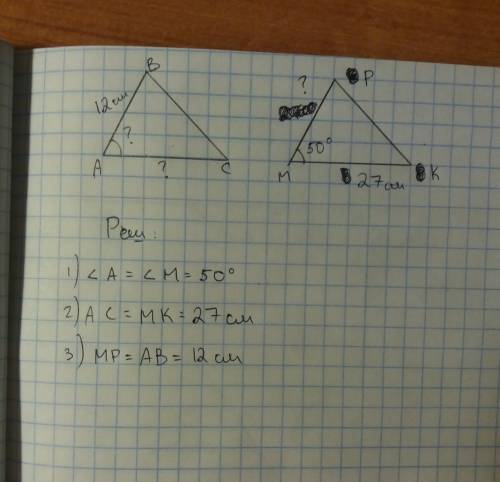 B
12 см
?
A
?
C
?
P
50°
M
27 см
K
Реш:
1) ∠A = ∠M = 50°
2) AC = MK = 27 см
3) MP = AB = 12 см